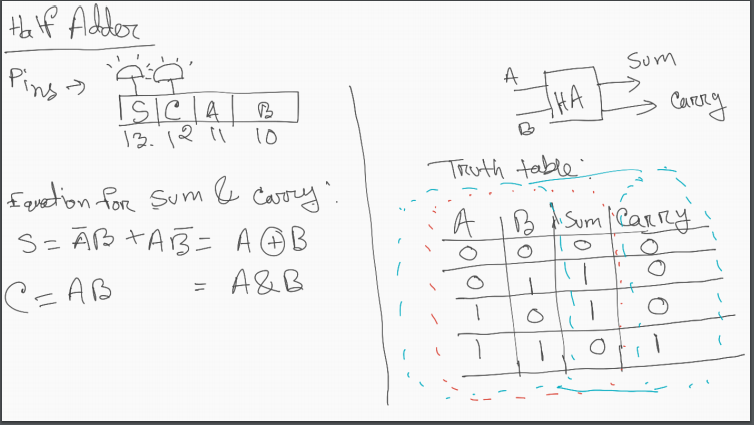 Half Adder
Pins →
S C A B
13. 12 11 10
Equation for Sum & Carry:
S = A̅B + AB̅ = A ⊕ B
C = AB = A&B
A
B
HA
Sum
Carry
Truth table:
A B Sum Carry
0 0 0 0
0 1 1 0
1 0 1 0
1 1 0 1